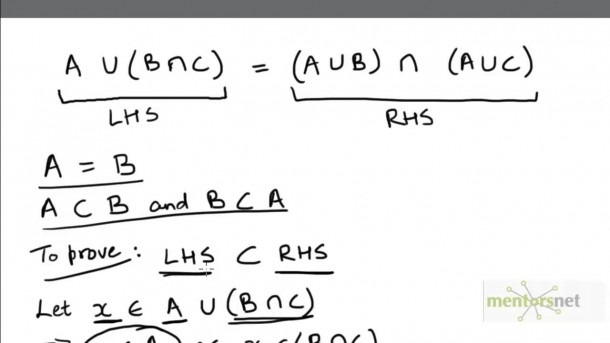 A ∪ (B ∩ C) = (A ∪ B) ∩ (A ∪ C)
LHS RHS
A = B
A ⊂ B and B ⊂ A
To prove: LHS ⊂ RHS
Let x ∈ A ∪ (B ∩ C)
mentorsnet